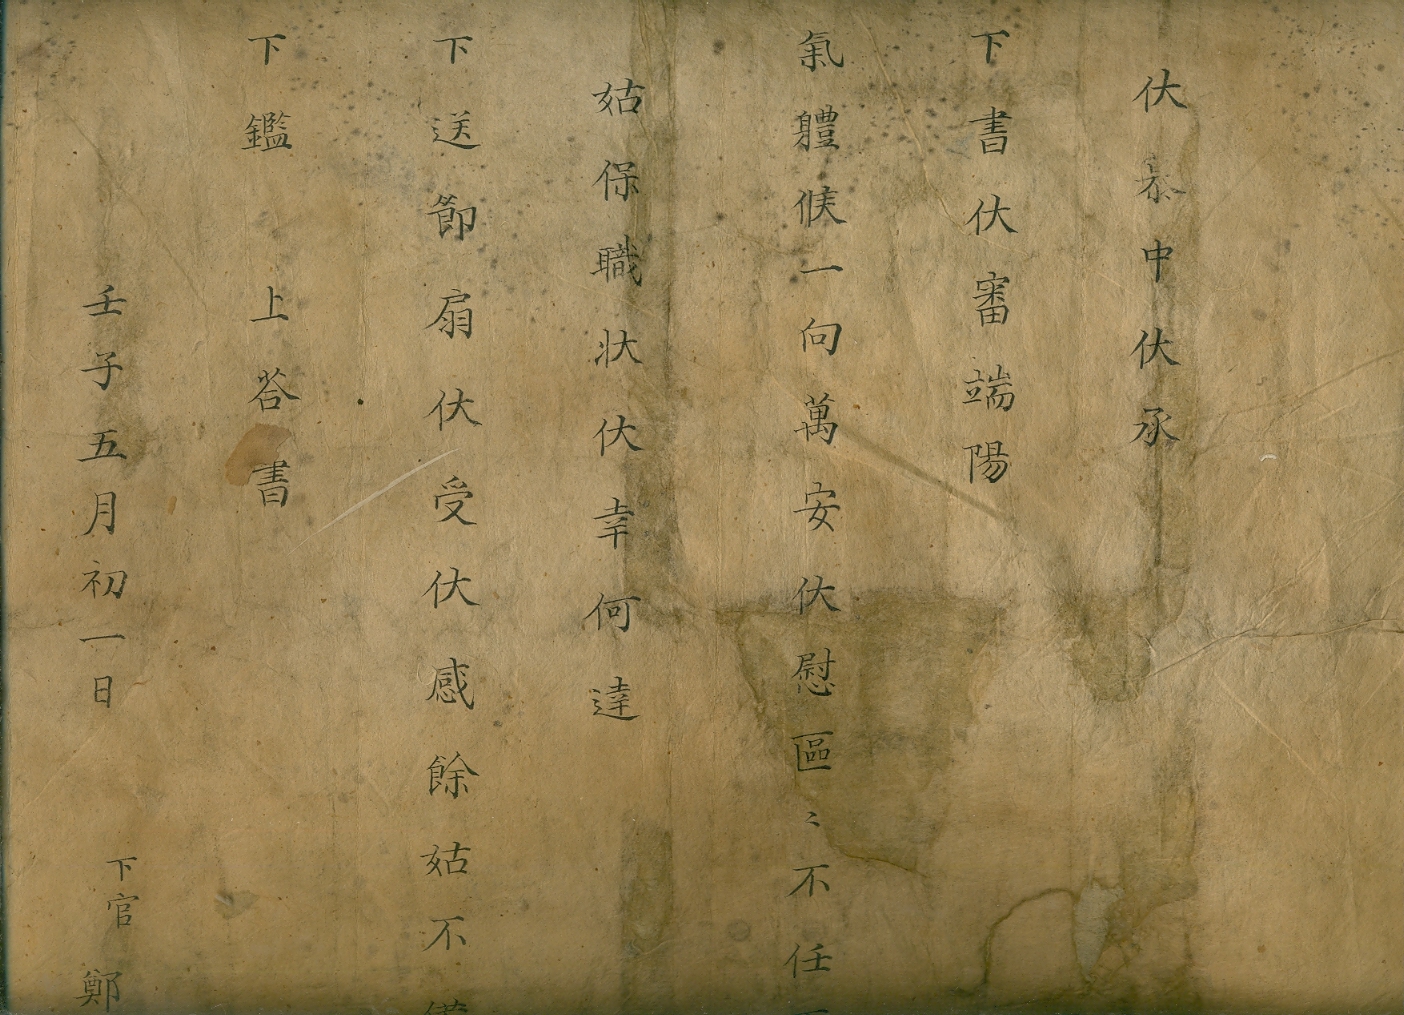 伏慕中伏承
下書伏審端陽
氣體候一向萬安伏慰區〻不任
姑保職狀伏幸何達
下送節扇伏受伏感餘姑不備
下鑑 上答書
壬子五月初一日 下官 鄭